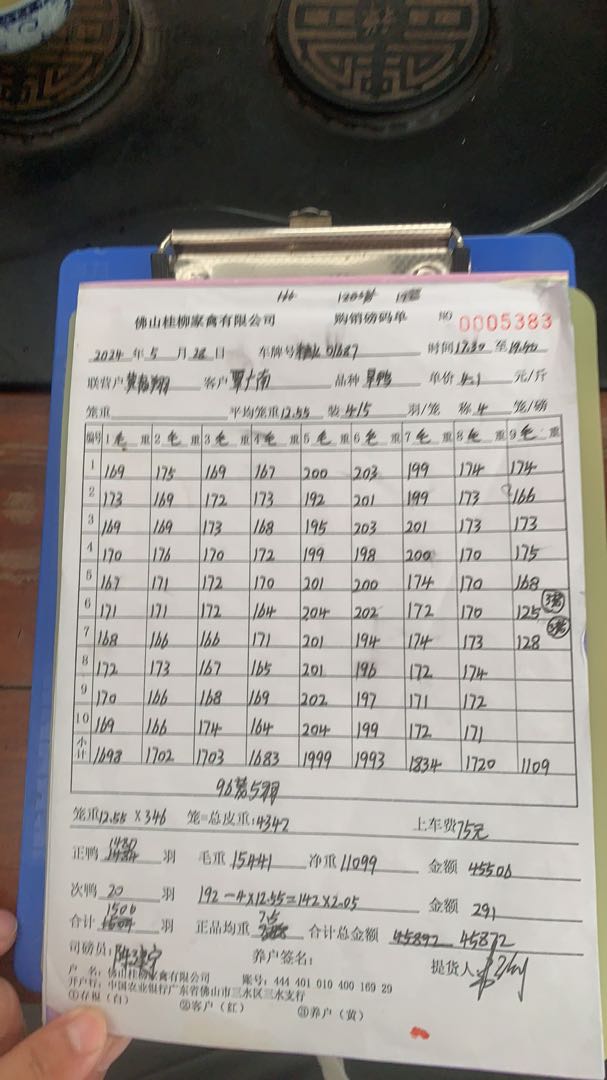 116 1205
佛山桂柳家禽有限公司 购销磅码单 NO 0005383
2024 年 5 月 28 日 车牌号 01687 时间 17:30 至 19:40
联营户 翔 客户 覃广南 品种 单价 4.1 元/斤
笼重 平均笼重 12.55 装 4/5 羽/笼 称 4 笼/磅
编号 1 毛 重 2 毛 重 3 毛 重 4 毛 重 5 毛 重 6 毛 重 7 毛 重 8 毛 重 9 毛 重
1 169 175 169 167 200 203 199 174 174
2 173 169 172 173 192 201 199 173 166
3 169 169 173 168 195 203 201 173 173
4 170 176 170 172 199 198 200 170 175
5 167 171 172 170 201 200 174 170 168
6 171 171 172 164 204 202 172 170 125 3笼
7 168 166 166 171 201 194 174 173 128 3笼
8 172 173 167 165 201 196 172 174
9 170 166 168 169 202 197 171 172
10 169 166 174 164 204 199 172 171
小计 1698 1702 1703 1683 1999 1993 1834 1720 1109
96笼5羽
笼重 12.55 × 346 笼=总皮重: 4342 上车费 75元
正鸭 1480 羽 毛重 15441 净重 11099 金额 45506
次鸭 20 羽 192-4×12.55=142×2.05 金额 291
合计 1500 羽 正品均重 7.5 合计总金额 45892 45872
司磅员: 养户签名: 提货人:
户 名: 佛山桂柳家禽有限公司 账号: 444 401 010 400 169 29
开户行: 中国农业银行广东省佛山市三水区三水支行
①存根(白) ②客户(红) ③养户(黄)